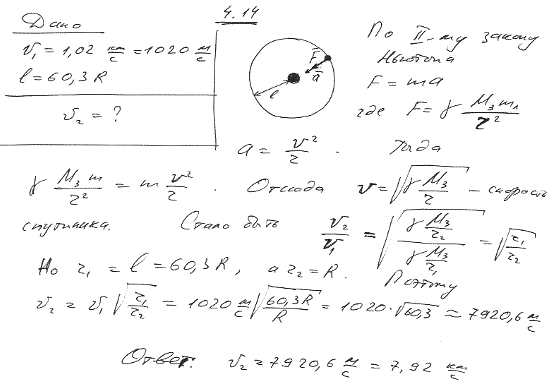 4.14
Дано
v₁ = 1,02 км/с = 1020 м/с
l = 60,3 R
v₂ = ?
F
a
l
По II-му закону
Ньютона
F = ma
где F = γ M₃ mл / r²
a = v²/r . Тогда
γ M₃ m / r² = m v²/r . Отсюда v = √(γ M₃/r) – скорость
спутника. Стало быть v₂/v₁ = √((γ M₃/r₂)/(γ M₃/r₁)) = √(r₁/r₂)
Но r₁ = l = 60,3 R, а r₂ = R. Поэтому
v₂ = v₁ √(r₁/r₂) = 1020 м/с √(60,3R/R) = 1020·√60,3 ≈ 7920,6 м/с
Ответ: v₂ = 7920,6 м/с = 7,92 км/с